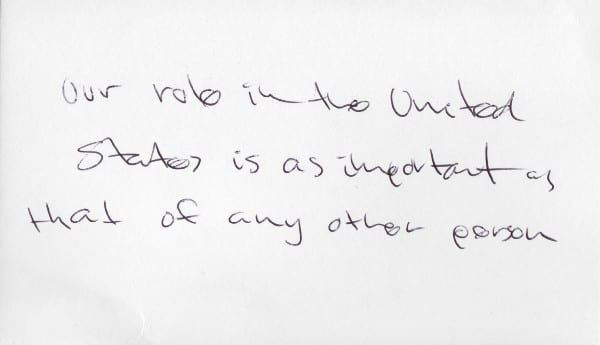 Our role in the United
States is as important as
that of any other person